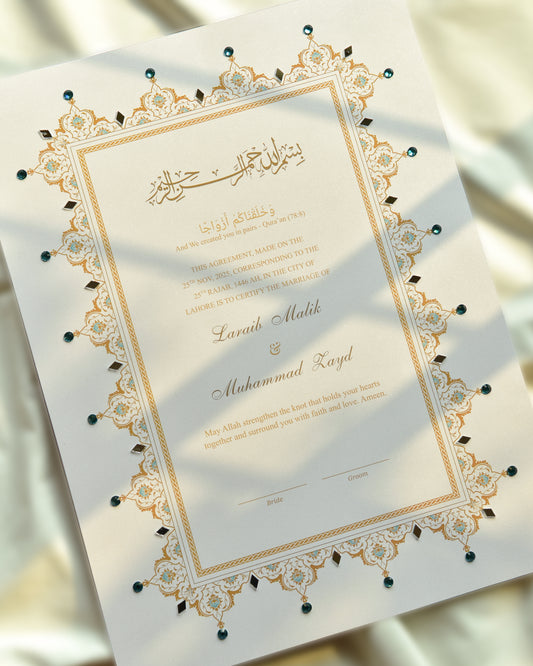 بسم الله الرحمن الرحيم
وَخَلَقْنَاكُمْ أَزْوَاجًا
And We created you in pairs - Qura'an (78:8)
THIS AGREEMENT, MADE ON THE
25TH NOV, 2025, CORRESPONDING TO THE
25TH RAJAB, 1446 AH, IN THE CITY OF
LAHORE IS TO CERTIFY THE MARRIAGE OF
Laraib Malik
&
Muhammad Zayd
May Allah strengthen the knot that holds your hearts
together and surround you with faith and love. Ameen.
Bride Groom